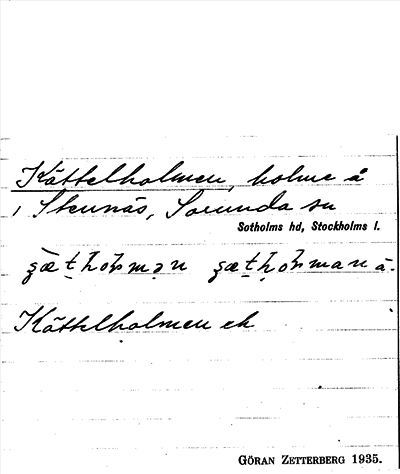 Kättelholmen, holme å
i Stennäs, Sorunda sn
Sotholms hd, Stockholms l.
Kättelholmen ek
GÖRAN ZETTERBERG 1935.